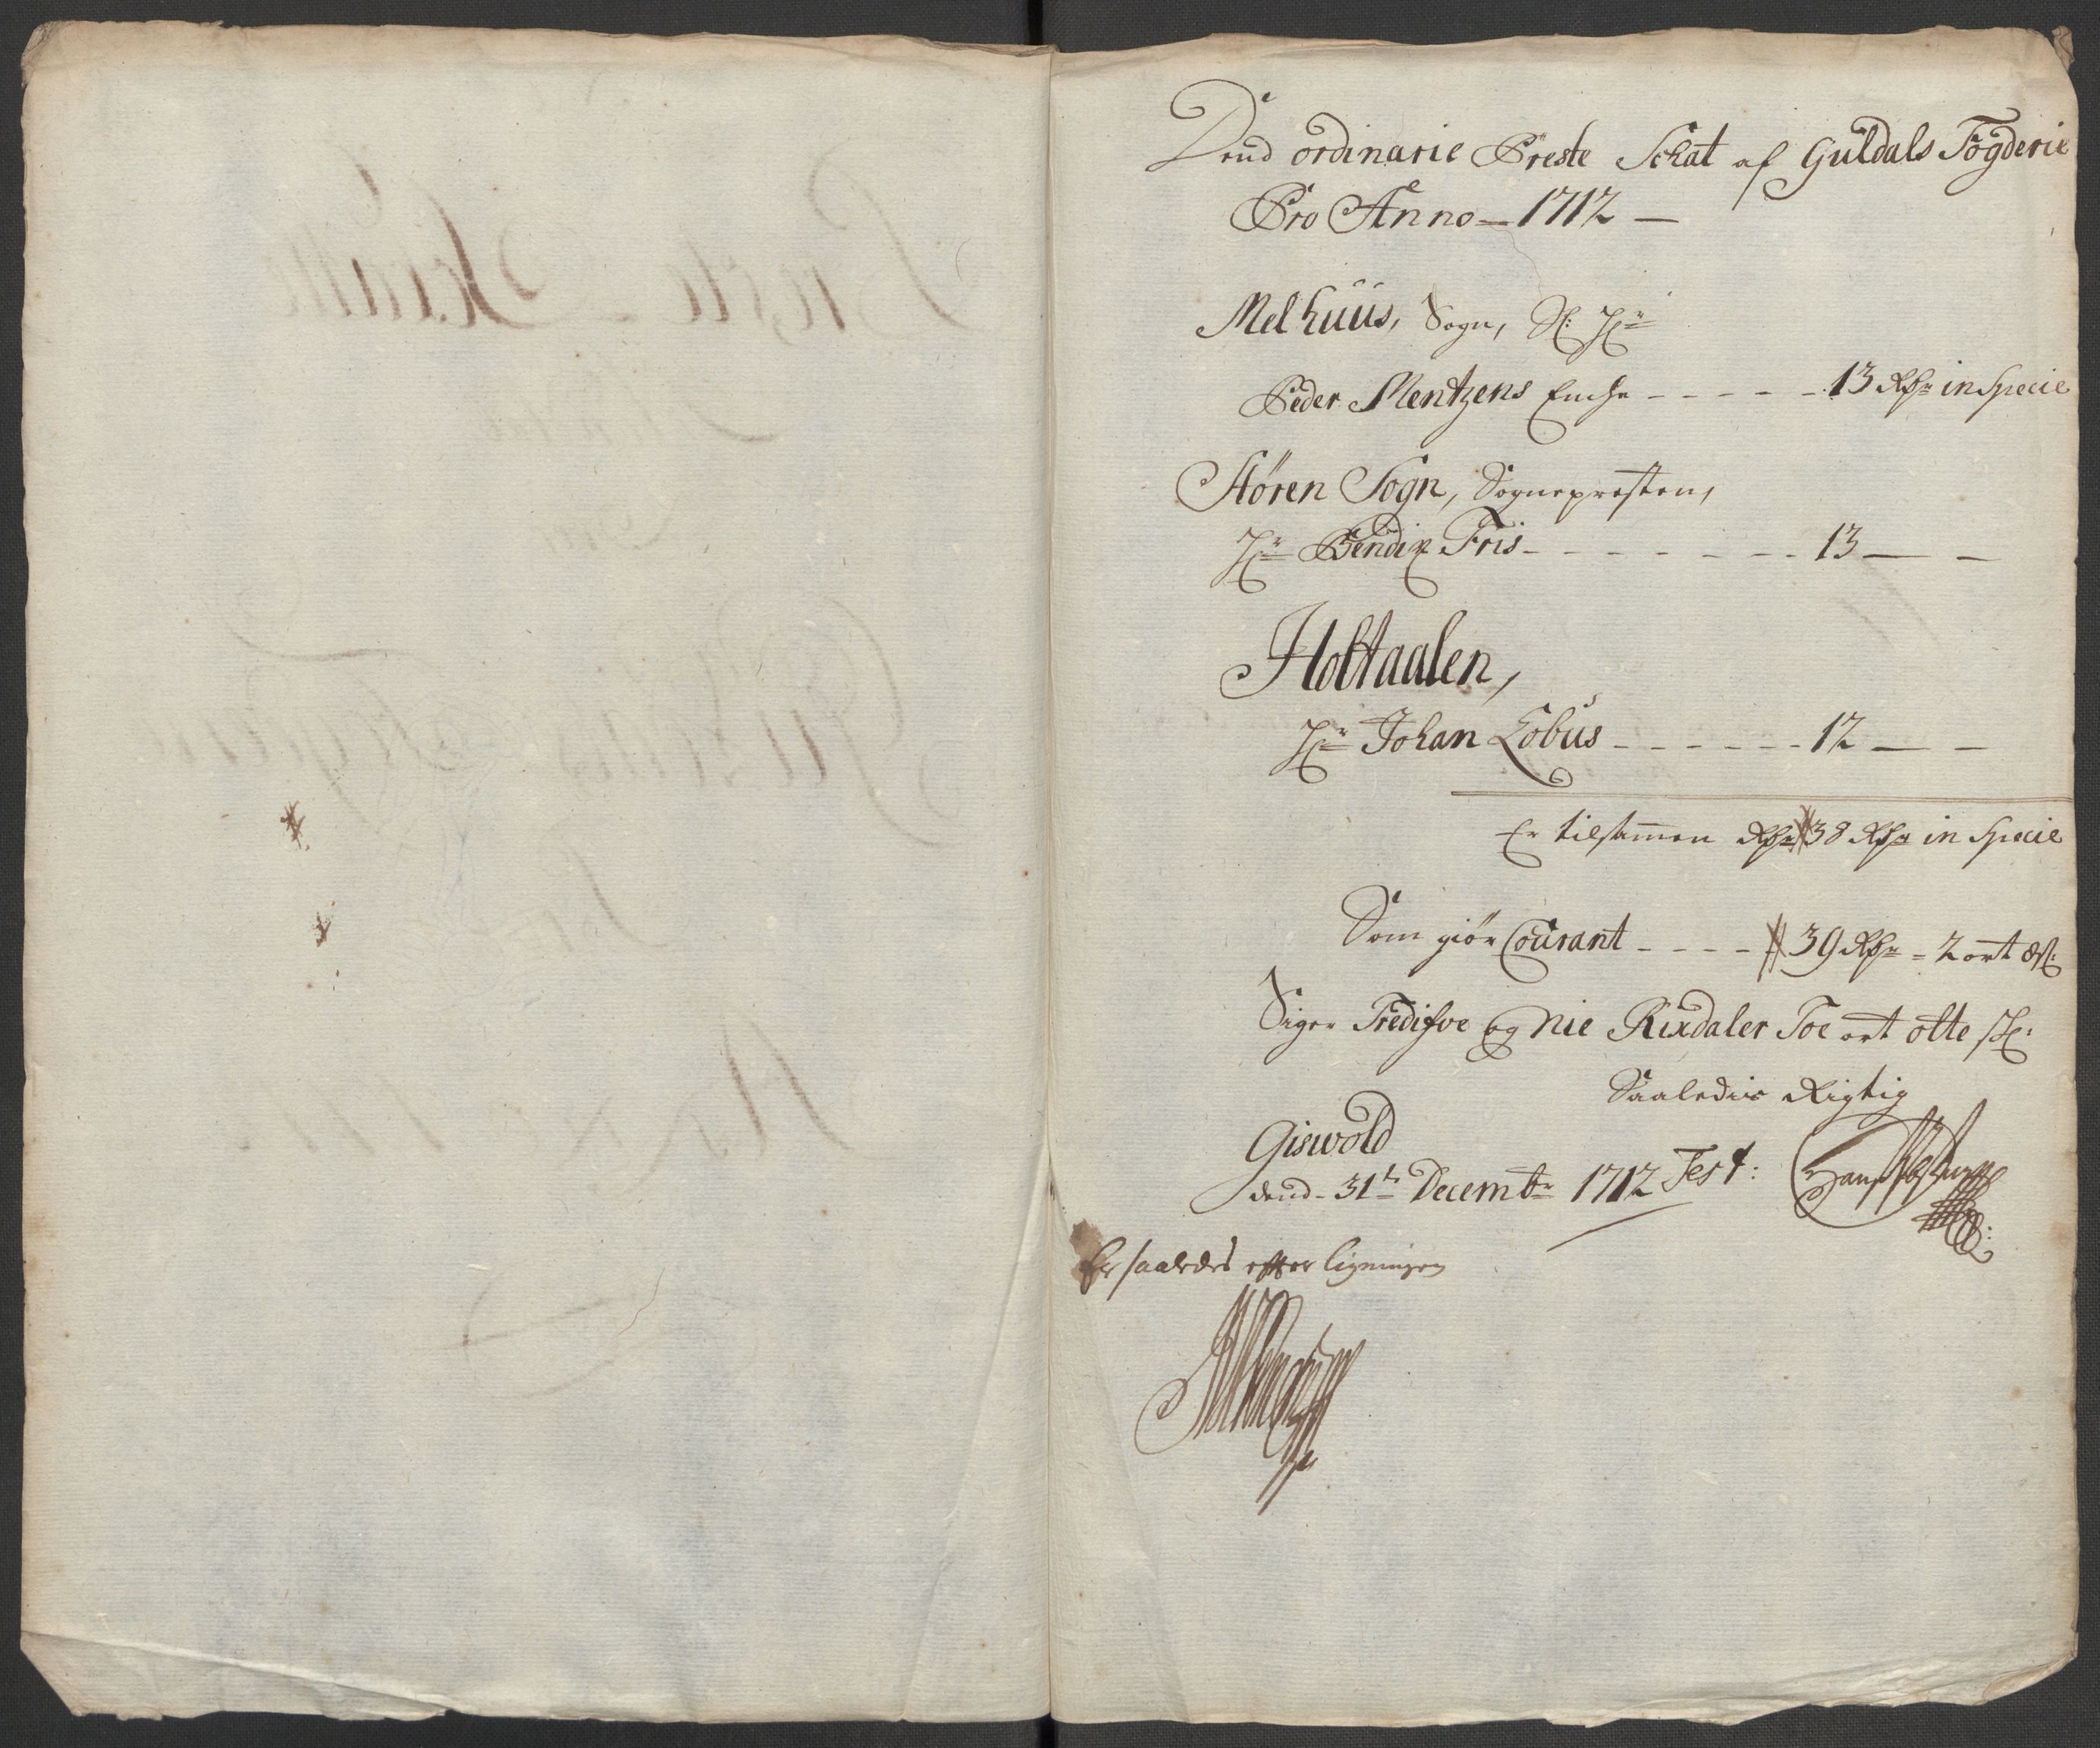 Dend ordinarie Preste Schat af Guldals Fogderie
Pro Anno — 1712 —
Melhuus, Sogn, Sl: Hr
Peder Mentzens Enche - - - - - 13 Rdr in Specie
Støren Sogn, Sognepresten,
Hr Bendix Friis - - - - - - - 13 — —
Holtaalen,
Hr Johan Lobus - - - - - - 12 — —
Er tilsammen Rdr 38 Rdr in Specie
Som giør Courant - - - - 39 Rdr - 2 ort 8 s:
Siger Tredifve og Nie Rixdaler Toe ort otte sk:
Saaledis Rigtig
Giswold
dend - 31te Decembr 1712 Test:
Er saaledes efter ligningen